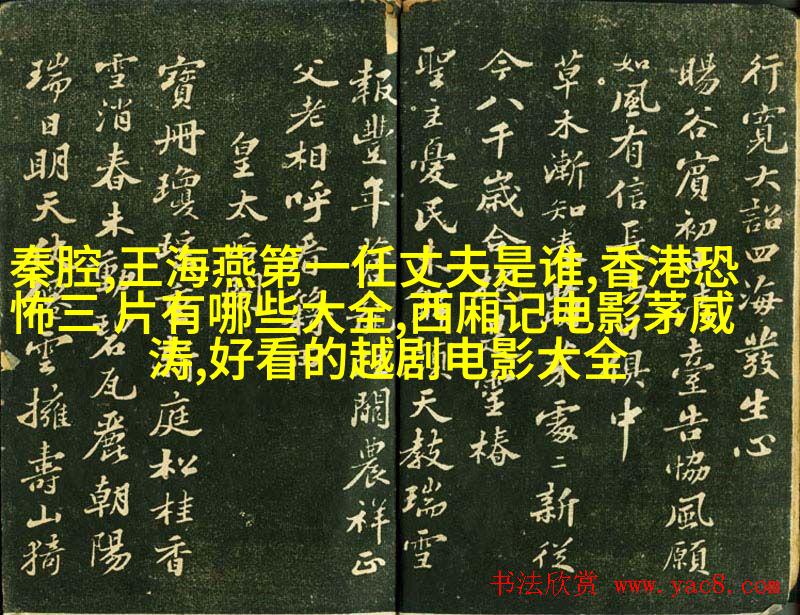 行寬大詔四海發生心
暘谷賓初日清臺告協風願
如風有信長與日俱中
草木漸知春萌芽處二新從
今八千歲合抱是靈椿
聖主憂民天教瑞雪
報豐年關農祥正
父老相呼看
皇太
寶冊瓊庭松桂香
雪消春未動碧瓦麗朝陽
瑞日明天雲擁壽山猗
秦腔,王海燕第一任丈夫是谁,香港恐
怖三 片有哪些大全,西厢记电影茅威
涛,好看的越剧电影大全
书法欣赏 www.yac8.com